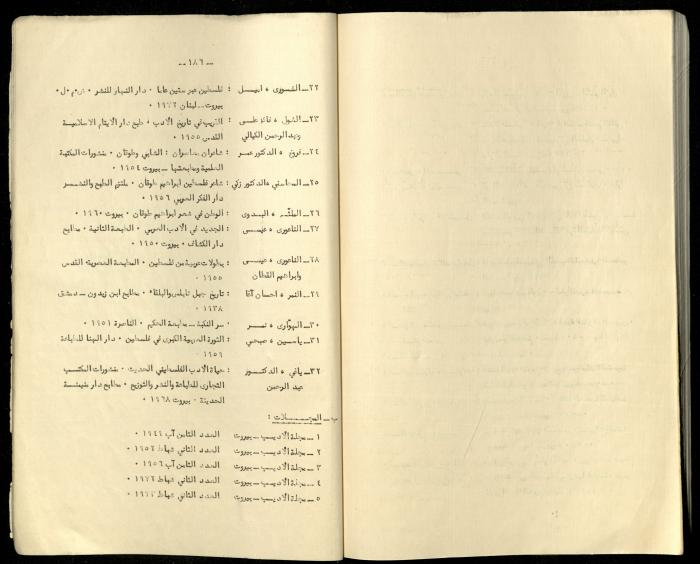 - ١٨٦ -
٢٢ـ الخورى ، اميل : فلسطين عبر ستين عاما ، دار النهار للنشر ،
بيروت ـ لبنان ١٩٧٢ ،
٢٣ـ الغول ، فائز على : القريب في تاريخ الادب ، طبع دار الايتام الاسلامية
وعبد الرحمن الكيالي القدس ١٩٥٥
٢٤ـ فروخ ، الدكتور عمر : شاعران معاصران : الشابي وطوقان ، منشورات المكتبة
العلمية ومطبعتها ـ بيروت ١٩٥٤ ،
٢٥ـ المحاسني ، الدكتور زكي : شاعر فلسطين ابراهيم طوقان ، ملتزم الطبع والنشر
دار الفكر العربي ١٩٥٦
٢٦ـ الملثم ، البدوى : الوطن في شعر ابراهيم طوقان ، بيروت ١٩٦٠ ،
٢٧ـ الناعورى ، عيسى : الجديد في الادب العربي ، الطبعة الثانية ، مطابع
دار الكشاف ، بيروت ١٩٥٠ ،
٢٨ـ الناعورى ، عيسى : بطولات عربية من فلسطين ، المطبعة العصرية القدس
وابراهيم القطان ١٩٥٥ ،
٢٩ـ النمر ، احسان آغا : تاريخ جبل نابلس والبلقاء ، مطابع ابن زيدون ـ دمشق
١٩٣٨ ،
٣٠ـ الهوارى ، نمر : سر النكبة ـ مطبعة الحكيم ، الناصرة ١٩٥١ ،
٣١ـ ياسين ، صبحي : الثورة العربية الكبرى في فلسطين ، دار الهنا للطباعة
١٩٥٩ ،
٣٢ـ ياغي ، الدكتور : حياة الادب الفلسطيني الحديث ، منشورات المكتب
عبد الرحمن التجارى للطباعة والنشر والتوزيع ، مطابع دار
الحديثة ، بيروت ١٩٦٨ ،
ب ـ المجـلات :
١ ـ مجلة الاديب ـ بيروت العدد الثامن آب ١٩٤٩ ،
٢ ـ مجلة الاديب ـ بيروت العدد الثاني شباط ١٩٥٢ ،
٣ ـ مجلة الاديب ـ بيروت العدد الثامن آب ١٩٥٦ ،
٤ ـ مجلة الاديب ـ بيروت العدد الثاني شباط
٥ ـ مجلة الاديب ـ بيروت العدد الثاني شباط